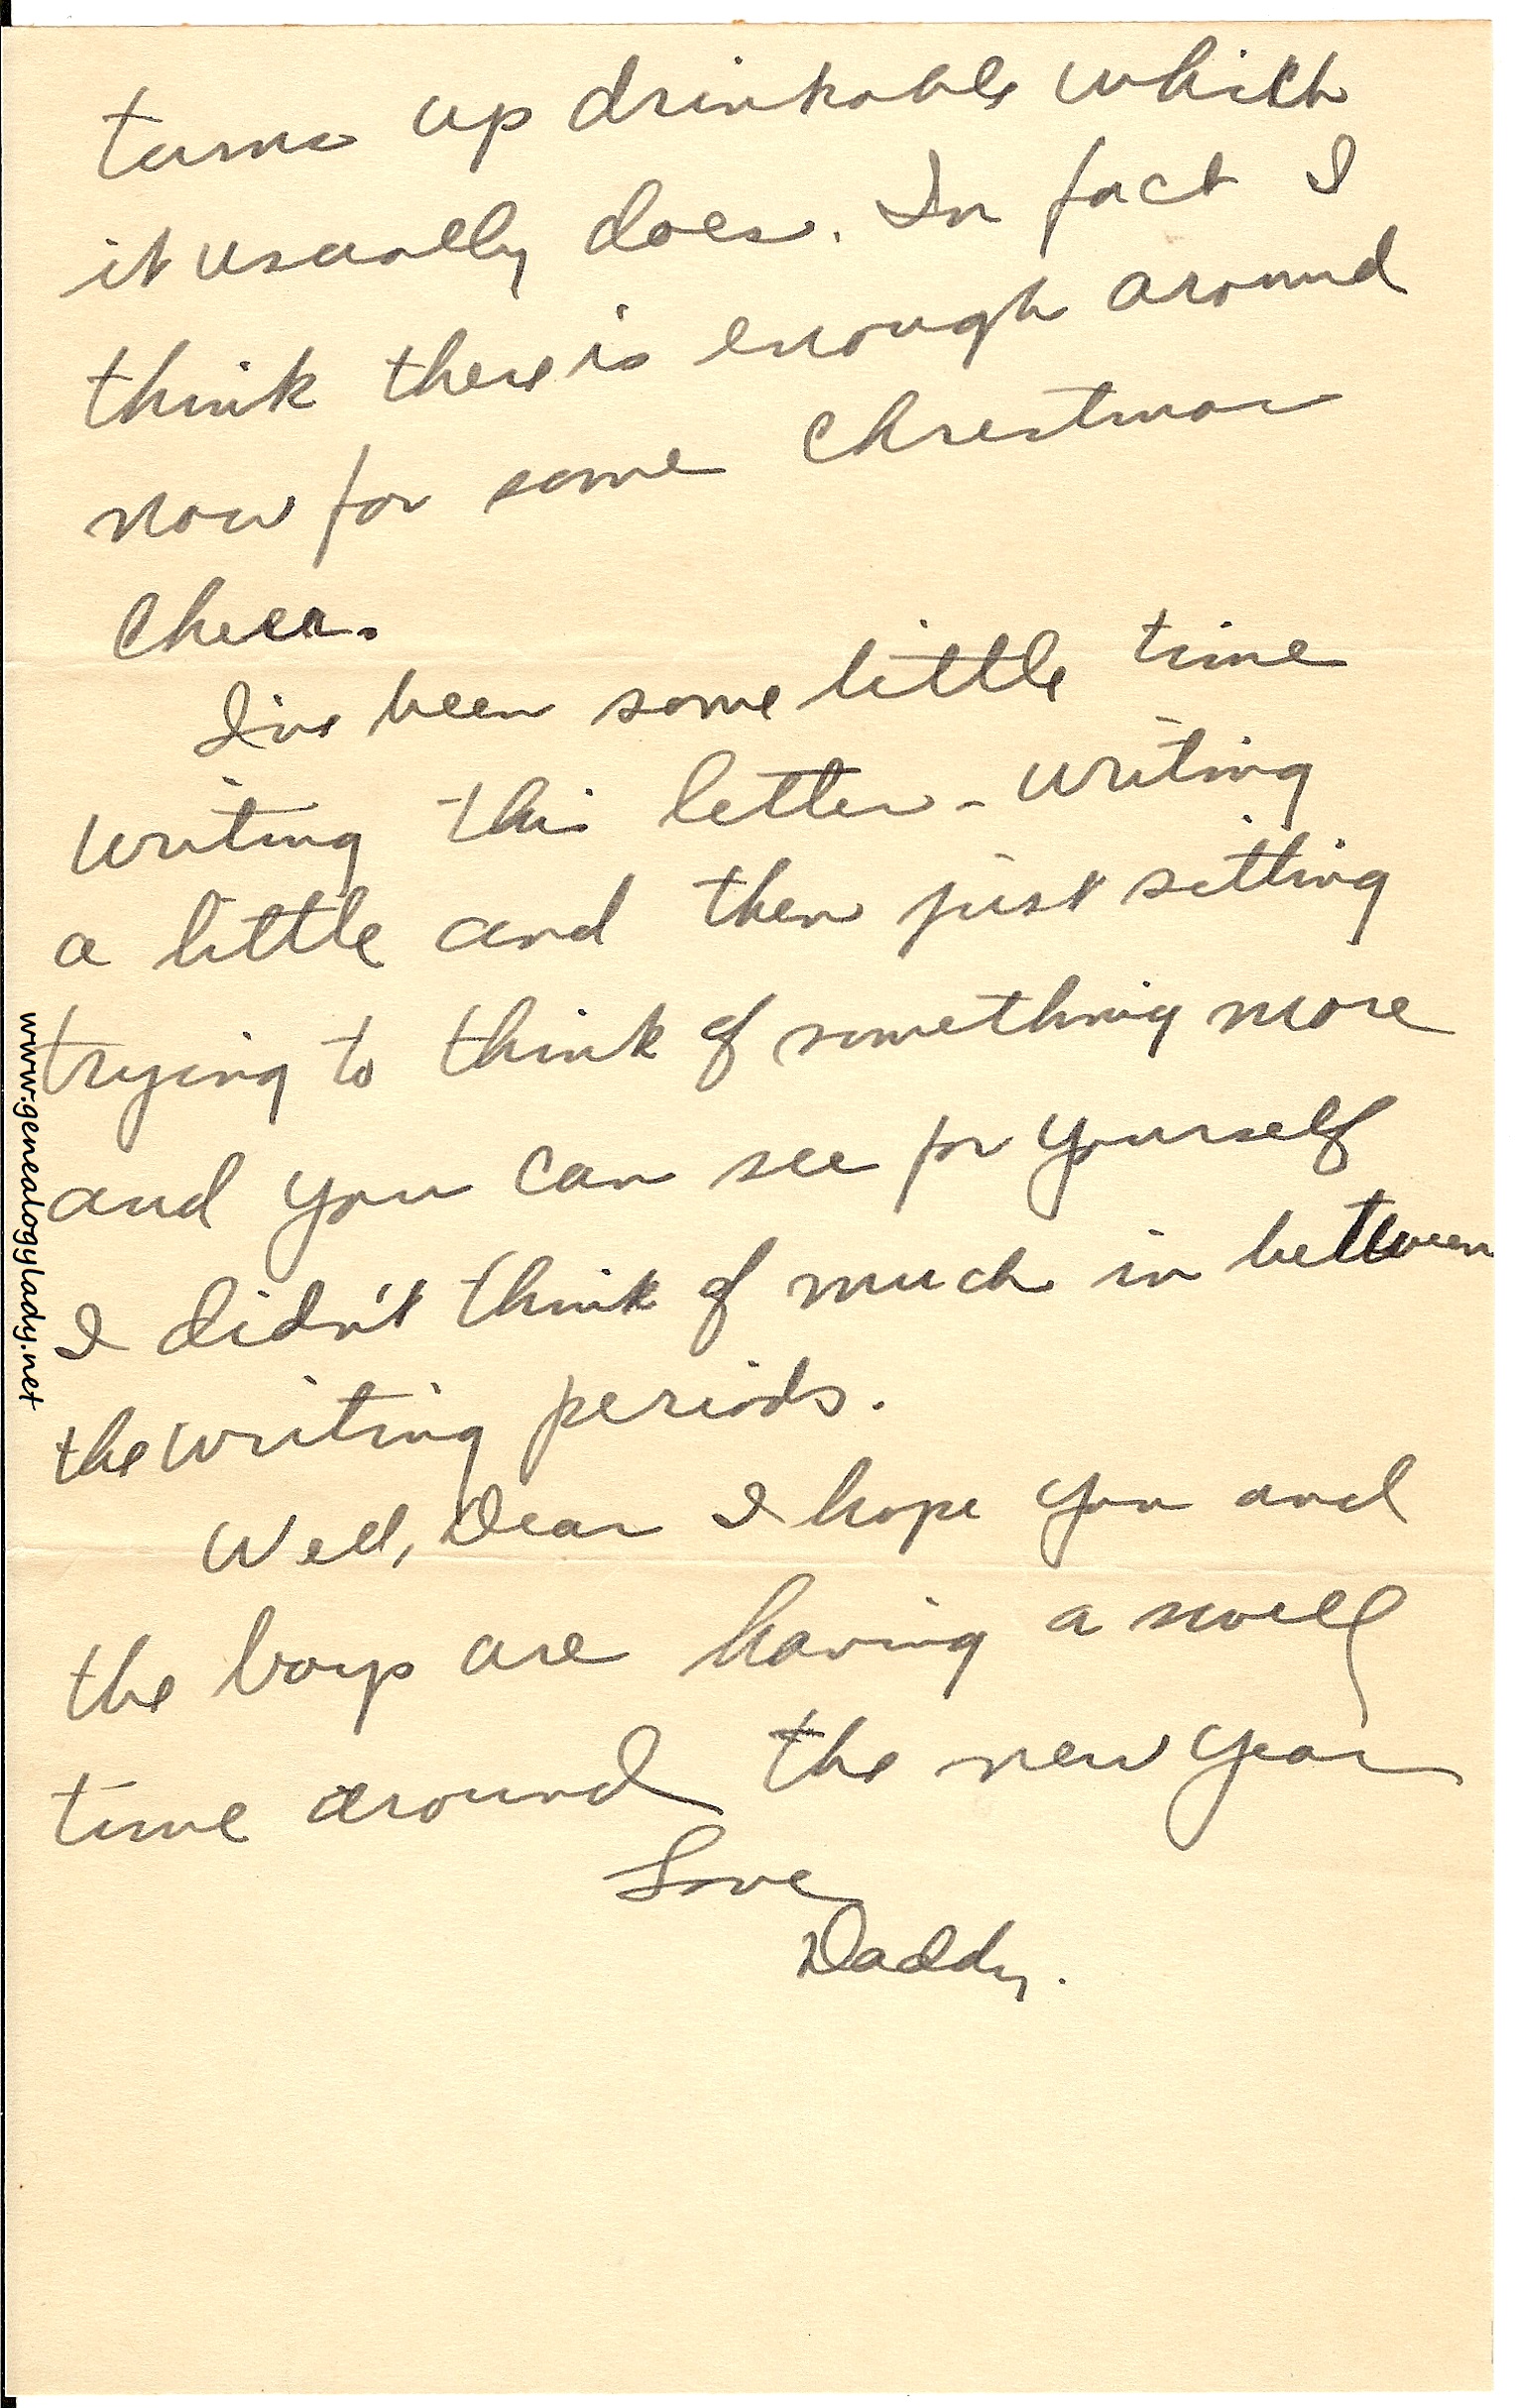 turns up drinkable which
it usually does. In fact I
think there is enough around
now for some Christmas
Cheer.
I've been some little time
writing this letter - writing
a little and then just sitting
trying to think of something more
and you can see for yourself
I didn't think of much in between
the writing periods.
Well, Dear I hope you and
the boys are having a swell
time around the new year
Love
Daddy.
www.genealogylady.net